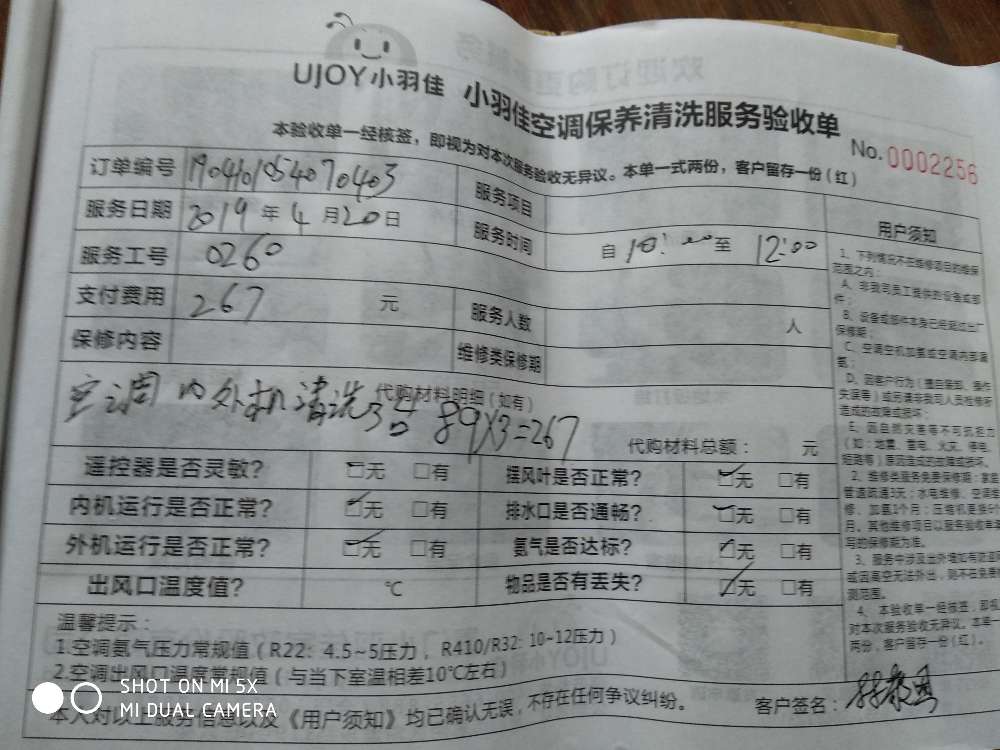 UJOY小羽佳 小羽佳空调保养清洗服务验收单
本验收单一经核签，即视为对本次服务验收无异议。本单一式两份，客户留存一份(红)
No. 0002256
订单编号 服务项目
服务日期 2019年4月20日 服务时间 自10:00至12:00
服务工号 0260
支付费用 267 元 服务人数 人
保修内容 维修类保修期
代购材料明细(如有)
空调内外机清洗3台 89×3=267
代购材料总额： 元
遥控器是否灵敏? 无 有 摆风叶是否正常? 无 有
内机运行是否正常? 无 有 排水口是否通畅? 无 有
外机运行是否正常? 无 有 氨气是否达标? 无 有
出风口温度值? ℃ 物品是否有丢失? 无 有
温馨提示：
1.空调氨气压力常规值(R22: 4.5~5压力，R410/R32: 10~12压力)
2.空调出风口温度常规值(与当下室温相差10℃左右)
本人对以上服务信息以及《用户须知》均已确认无误，不存在任何争议纠纷。 客户签名：
用户须知
1、下列情况不在维修项目的维保
范围之内：
A、非我司员工提供的设备或部
件；
B、设备或部件本身已经超过出厂
保修期；
C、空调空机加氨或空调内部漏
氨；
D、因客户行为(擅自装卸、操作
失误等)或另请非我司人员检修所
造成的故障或损坏；
E、因自然灾害等不可抗拒力
(如:地震、雷电、火灾、停电、
短路等)原因造成的故障或损坏。
2、维修类服务免费保修期：家庭
管道疏通3天；水电维修、空调维
修、加氨1个月；压缩机更换6个
月。其他维修项目以服务验收单填
写的保修期为准。
3、服务中涉及出外墙如有防盗
或因高空无法外出，则不在免费检
测范围。
4、本验收单一经核签，即视
对本次服务无异议。本单一
两份，客户留存一份(红)。
SHOT ON MI 5X
MI DUAL CAMERA